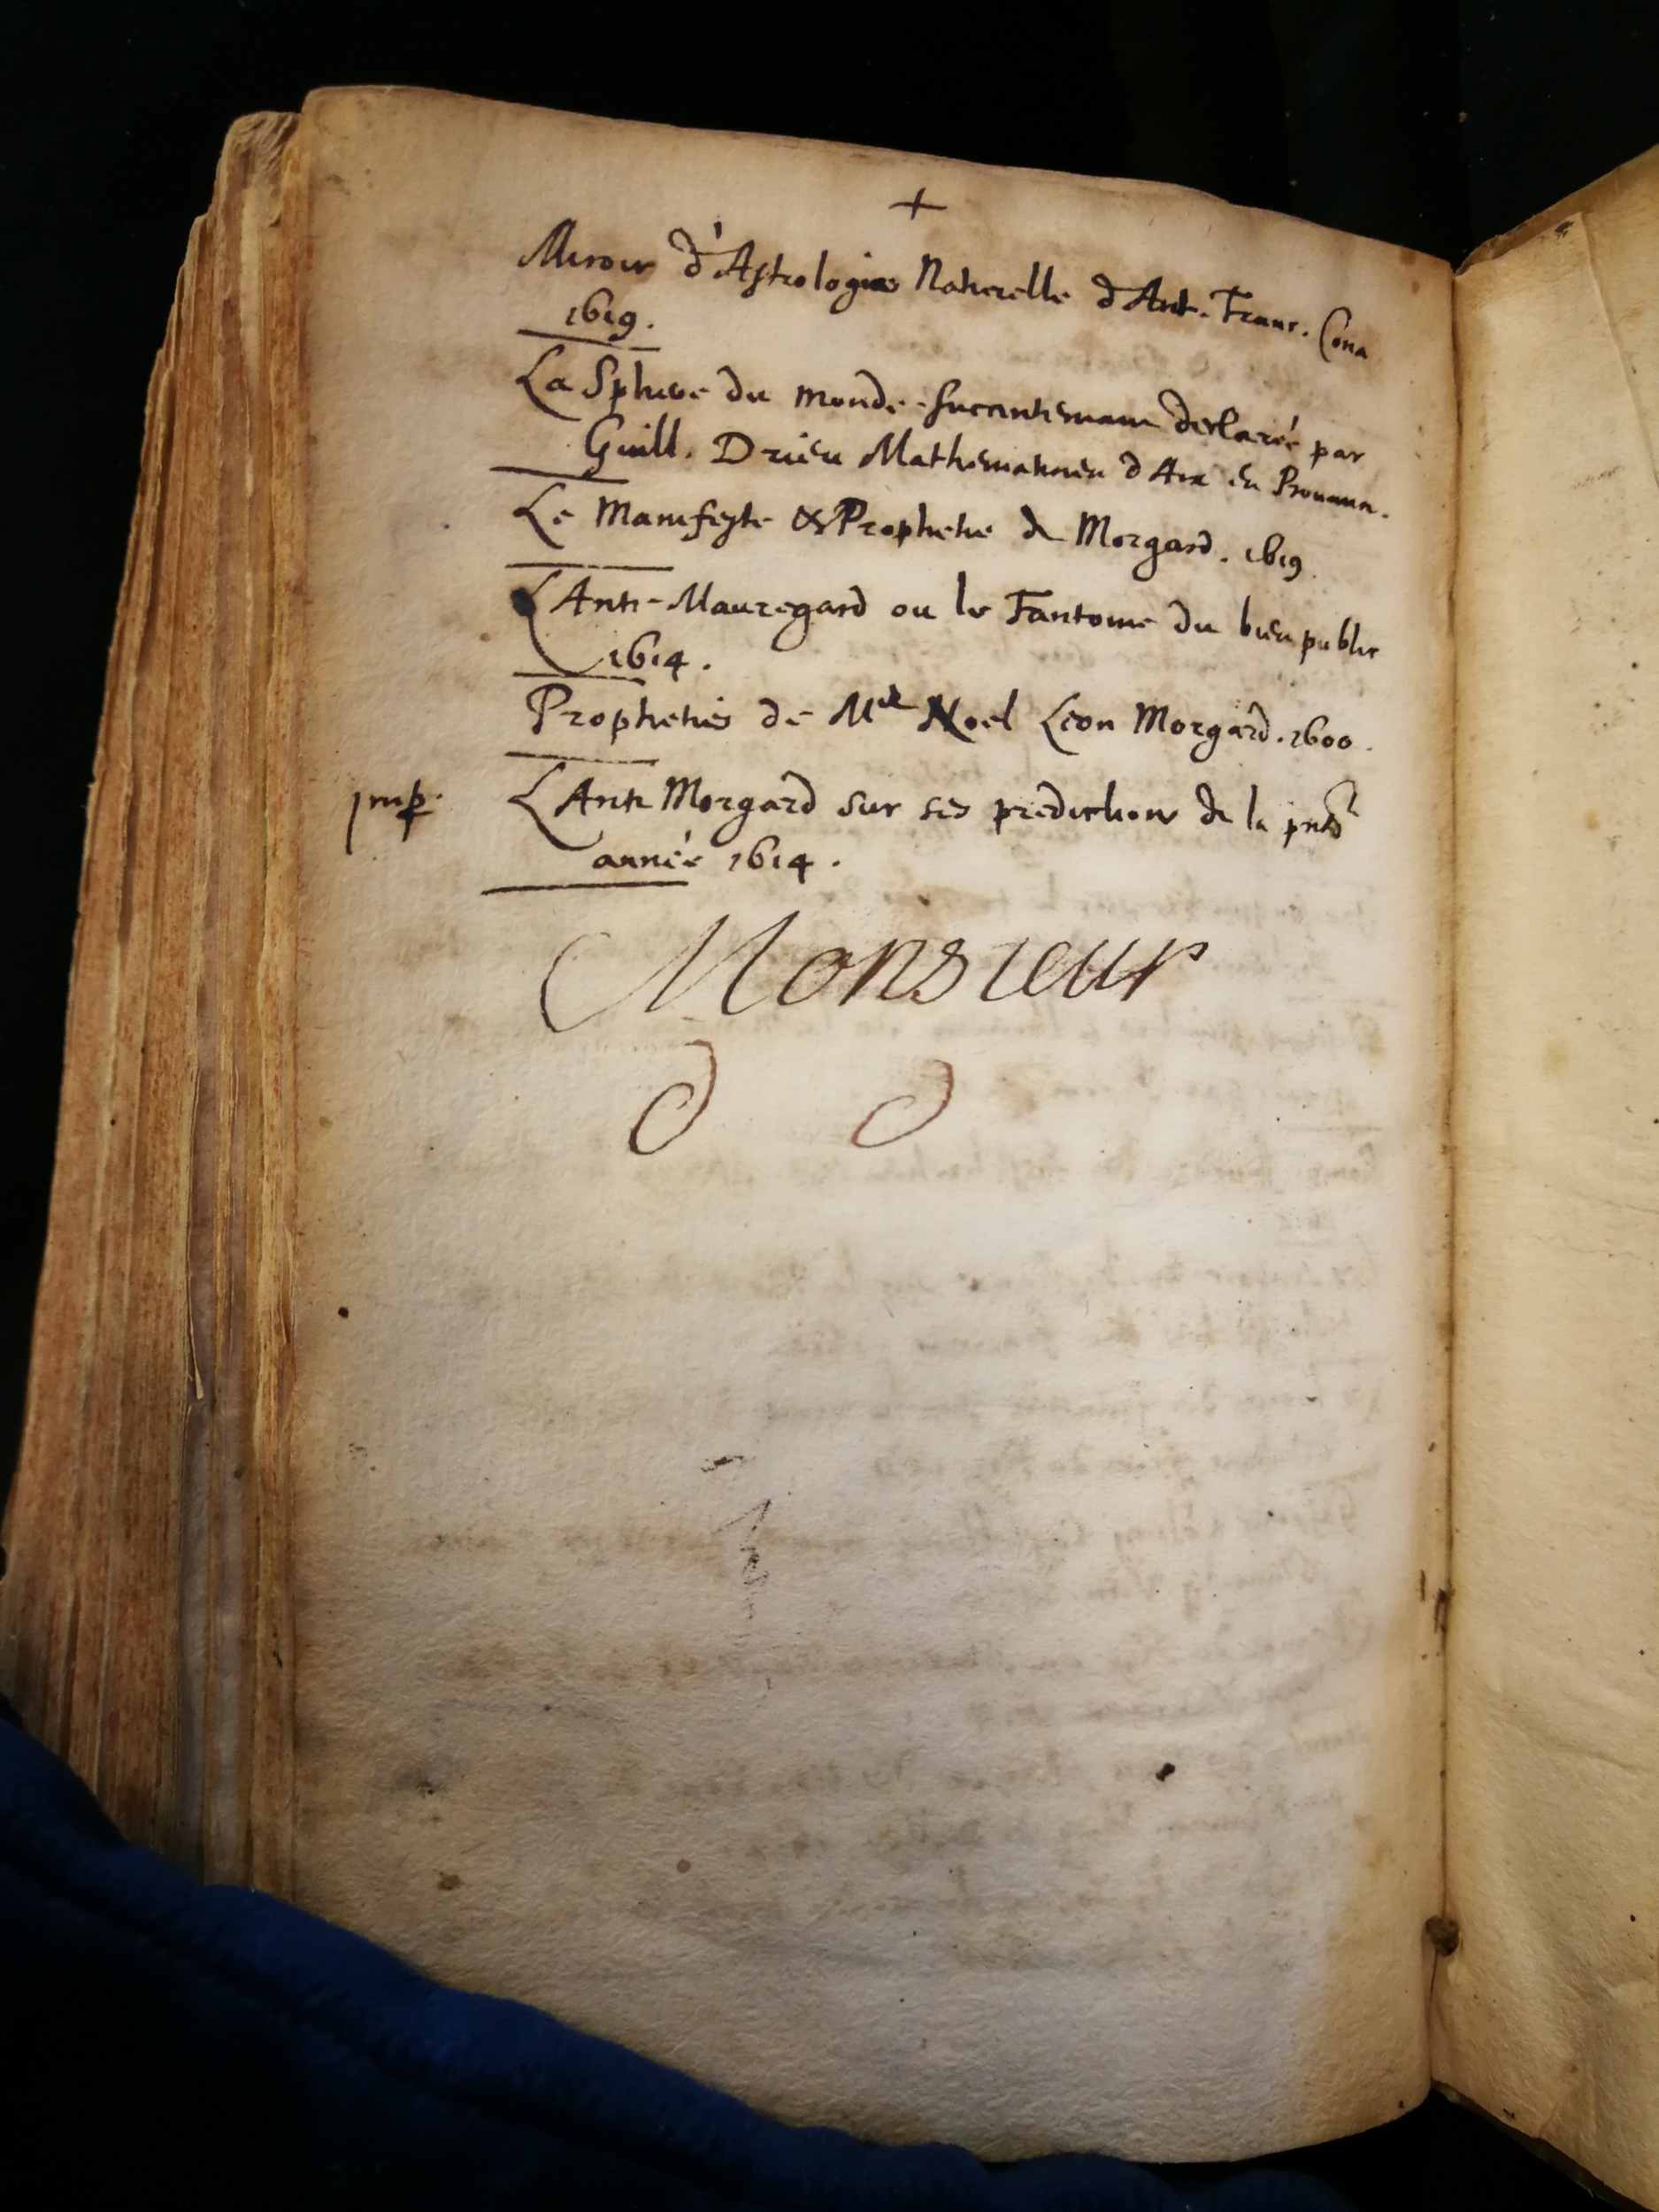 +
Miroir d'Astrologie Naturelle d'Ant. Franc. Bona
1619.
La Sphere du monde succintemant declarée par
Guill. Drieu Mathematicien d'Aix en Prouuan.
Le Manifeste & Prophetie de Morgard. 1619
L'Anti-Mauregard ou le Fantome du bien public
1614.
Propheties de Mre Noel Leon Morgard. 1600.
Imp. L'Anti Morgard sur ses predictions de la pnte
année 1614.
Monsieur